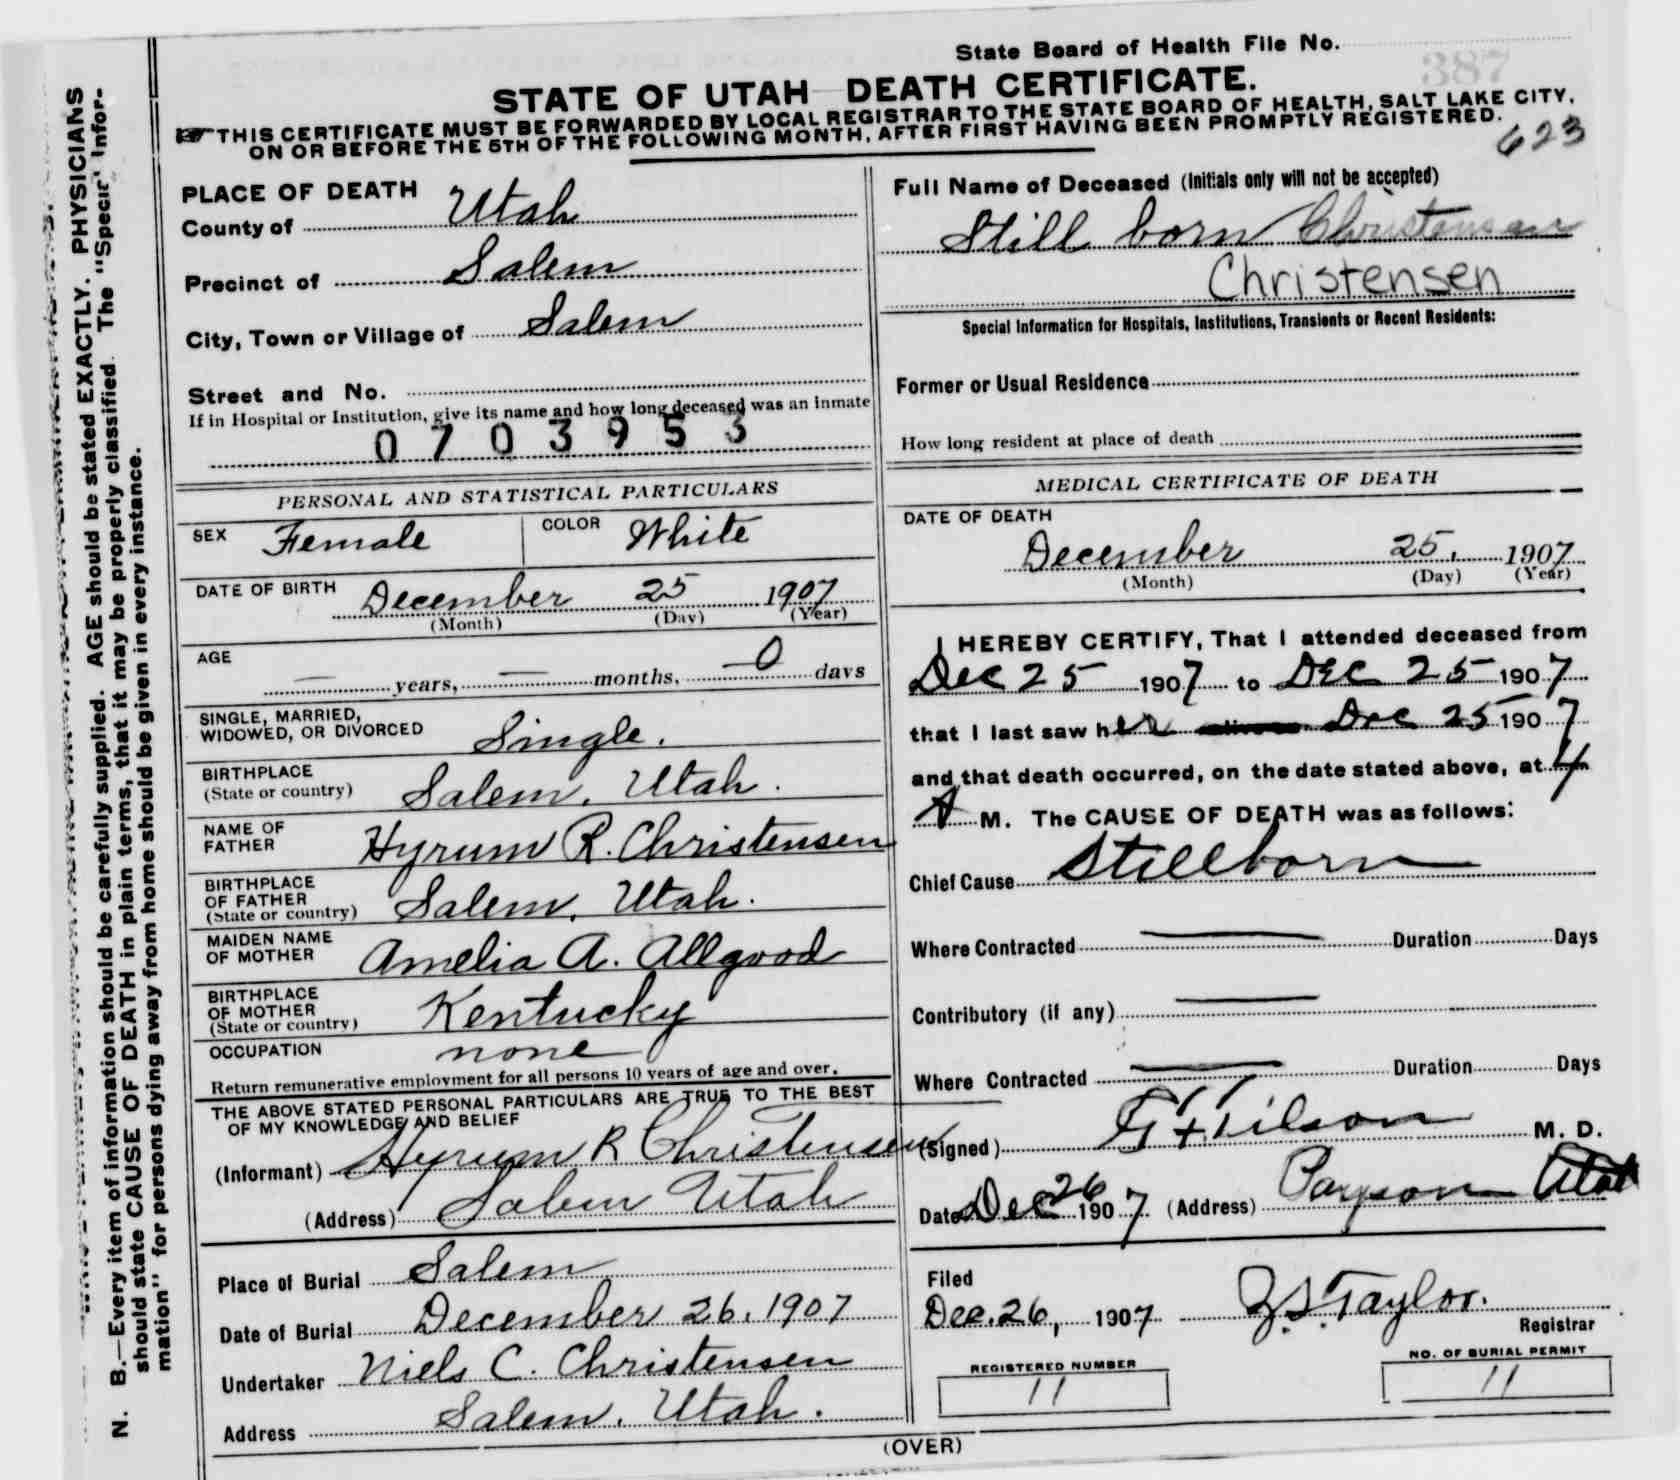 State Board of Health File No.
387
STATE OF UTAH DEATH CERTIFICATE.
THIS CERTIFICATE MUST BE FORWARDED BY LOCAL REGISTRAR TO THE STATE BOARD OF HEALTH, SALT LAKE CITY,
ON OR BEFORE THE 5TH OF THE FOLLOWING MONTH, AFTER FIRST HAVING BEEN PROMPTLY REGISTERED.
623
N. B.—Every item of information should be carefully supplied. AGE should be stated EXACTLY. PHYSICIANS
should state CAUSE OF DEATH in plain terms, that it may be properly classified. The "Special" Infor-
mation" for persons dying away from home should be given in every instance.
PLACE OF DEATH
County of Utah
Precinct of Salem
City, Town or Village of Salem
Street and No.
If in Hospital or Institution, give its name and how long deceased was an inmate
0703953
PERSONAL AND STATISTICAL PARTICULARS
SEX Female COLOR White
DATE OF BIRTH December 25 1907
(Month) (Day) (Year)
AGE
— years, — months, —0 days
SINGLE, MARRIED,
WIDOWED, OR DIVORCED Single.
BIRTHPLACE
(State or country) Salem, Utah.
NAME OF
FATHER Hyrum R. Christensen
BIRTHPLACE
OF FATHER
(State or country) Salem, Utah.
MAIDEN NAME
OF MOTHER Amelia A. Allgood
BIRTHPLACE
OF MOTHER
(State or country) Kentucky
OCCUPATION none
Return remunerative employment for all persons 10 years of age and over.
THE ABOVE STATED PERSONAL PARTICULARS ARE TRUE TO THE BEST
OF MY KNOWLEDGE AND BELIEF
(Informant) Hyrum R Christensen
(Address) Salem Utah
Place of Burial Salem
Date of Burial December 26, 1907
Undertaker Niels C. Christensen
Address Salem, Utah.
Full Name of Deceased (Initials only will not be accepted)
Still born Christensen
Christensen
Special Information for Hospitals, Institutions, Transients or Recent Residents:
Former or Usual Residence
How long resident at place of death
MEDICAL CERTIFICATE OF DEATH
DATE OF DEATH
December 25, 1907
(Month) (Day) (Year)
I HEREBY CERTIFY, That I attended deceased from
Dec 25 1907 to Dec 25 1907
that I last saw her Dec 25 1907
and that death occurred, on the date stated above, at 4
A M. The CAUSE OF DEATH was as follows:
Chief Cause Stillborn
Where Contracted — Duration Days
Contributory (if any) —
Where Contracted — Duration Days
(Signed) Tilson M. D.
Date Dec 26 1907 (Address) Payson Utah
Filed
Dec. 26, 1907 Z.S. Taylor.
Registrar
REGISTERED NUMBER
11
NO. OF BURIAL PERMIT
11
(OVER)